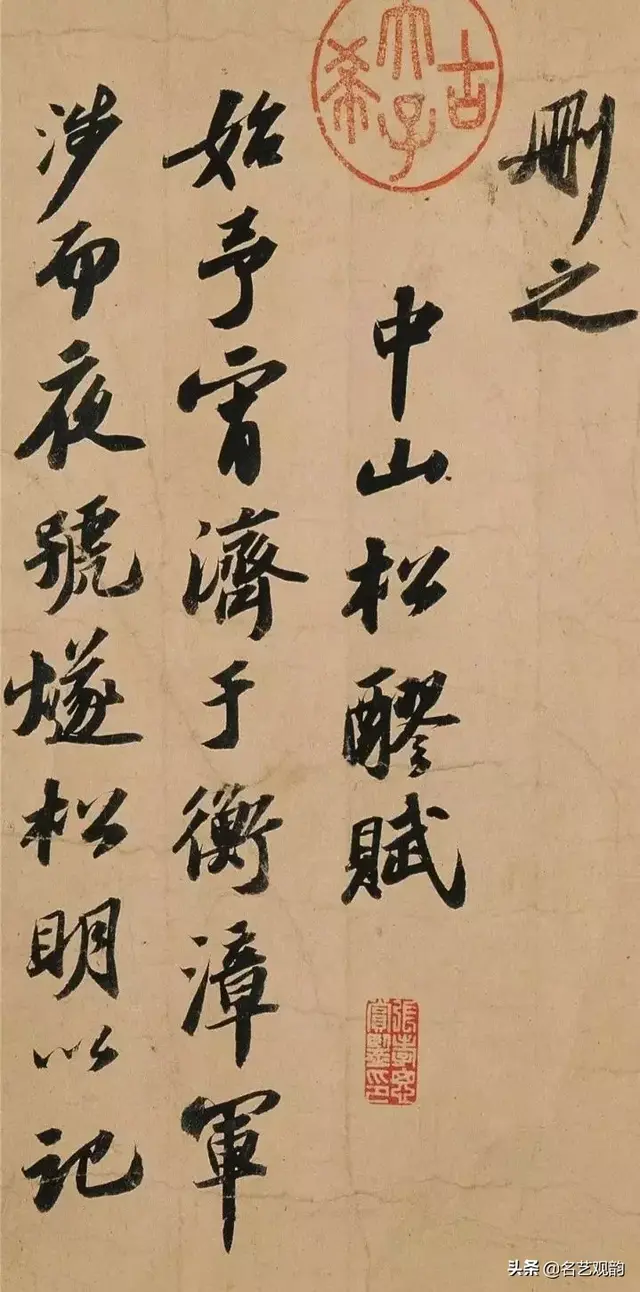 刪之
中山松醪賦
始予宵濟于衡漳軍
涉而夜號燧松明以記
古希天子
張孝思賞鑒印
头条 @名艺观韵